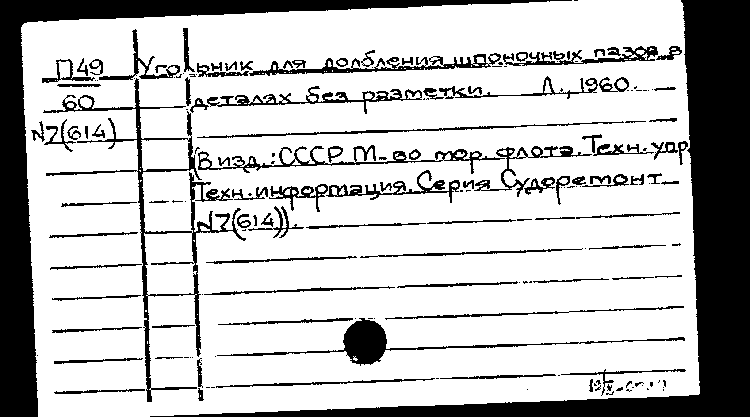 П49 Угольник для долбления шпоночных пазов в
60 деталях без разметки. Л., 1960.
N7(614)
(В изд.: СССР М-во мор. флота. Техн. упр.
Техн. информация. Серия Судоремонт
N7(614)).